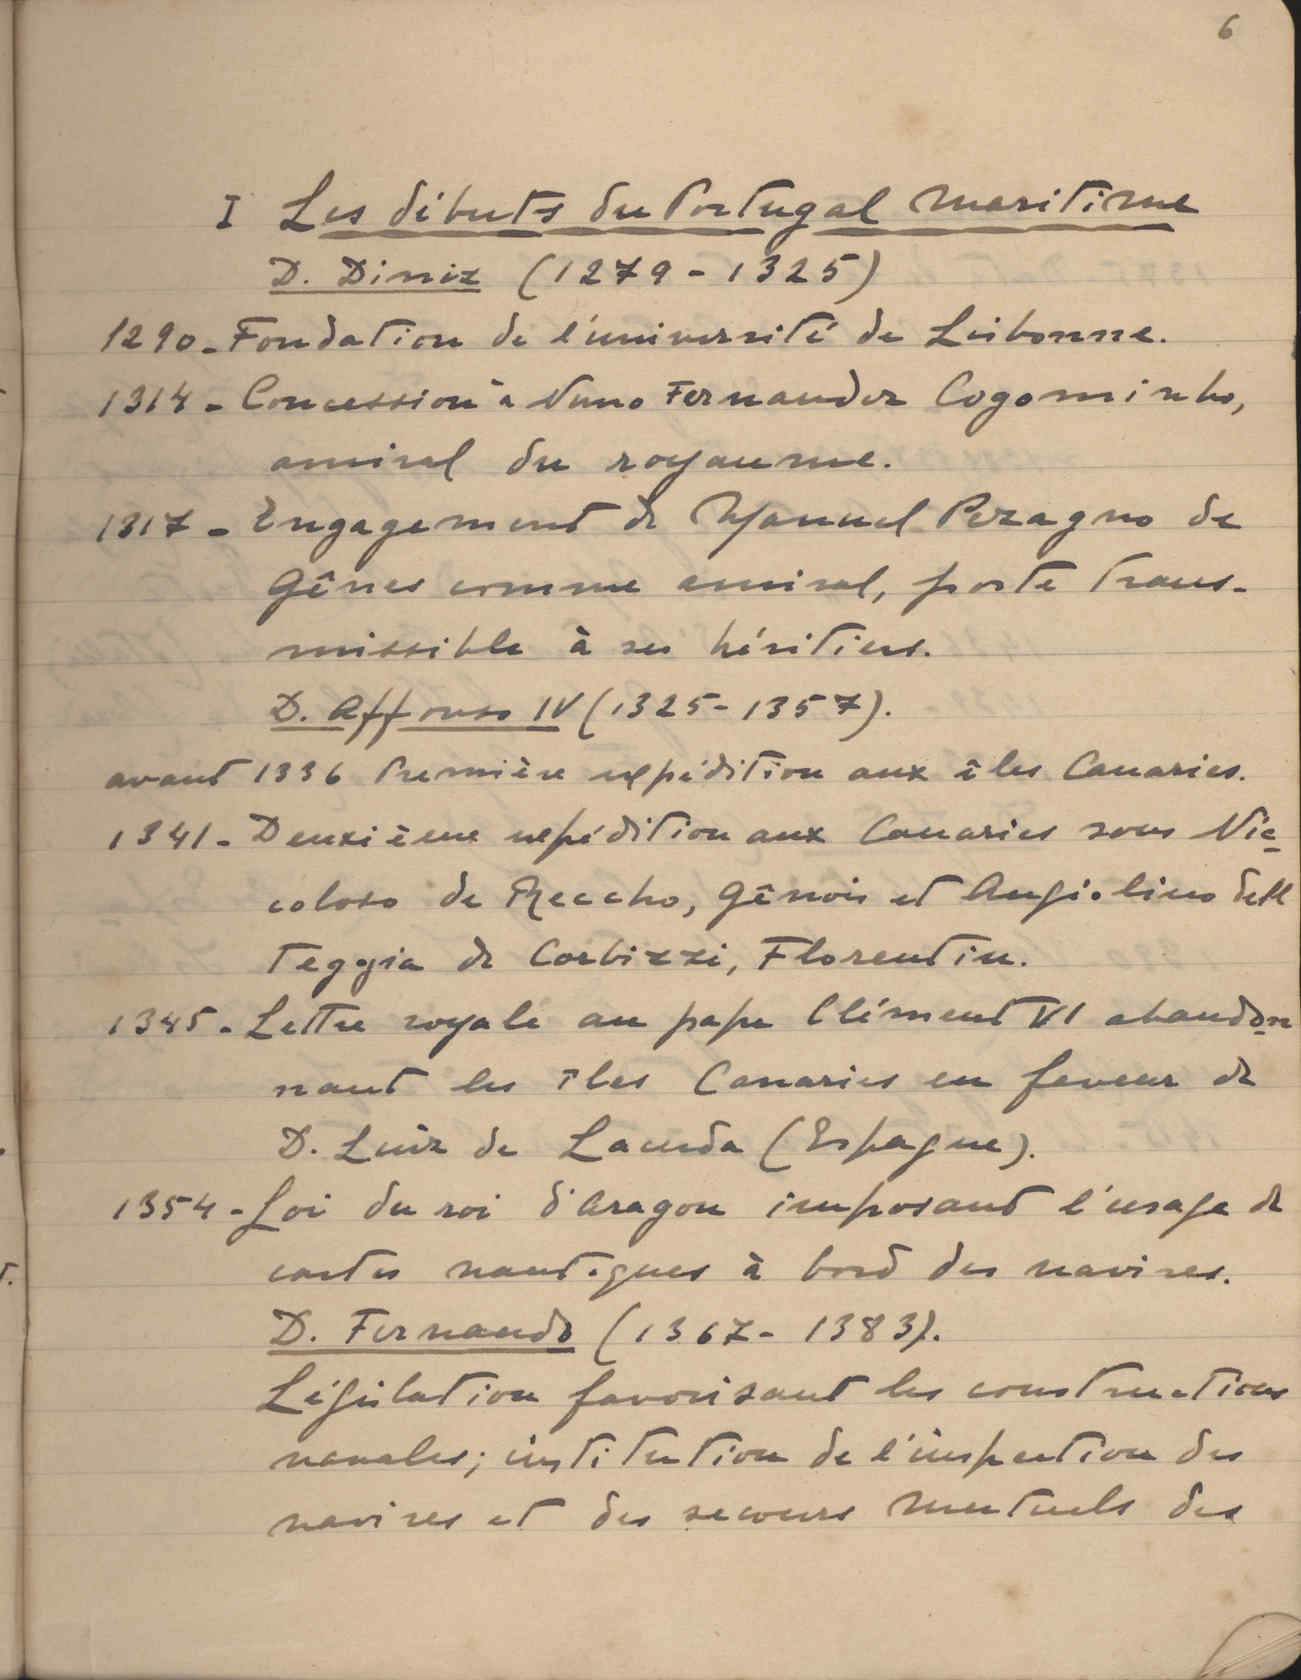 6
I Les débuts du Portugal maritime
D. Diniz (1279-1325)
1290-Fondation de l'université de Lisbonne.
1314- Concession à Nuno Fernandez Cogominho,
amiral du royaume.
1317- Engagement de Manuel Pezagno de
Gênes comme amiral, poste trans-
missible à ses héritiers.
D. Affonso IV (1325-1357).
avant 1336 Première expédition aux îles Canaries.
1341- Deuxième expédition aux Canaries sous Nic
coloso de Reccho, Gênois et Angiolino dell
Teggia de Corbizzi, Florentin.
1345- Lettre royale au pape Clément VI abandon
nant les îles Canaries en faveur de
D. Luiz de Lacerda (Espagne).
1354- Loi du roi d'Aragon imposant l'usage de
cartes nautiques à bord des navires.
D. Fernando (1367-1383).
Législation favorisant les constructions
navales; institution de l'inspection des
navires et des secours mutuels des